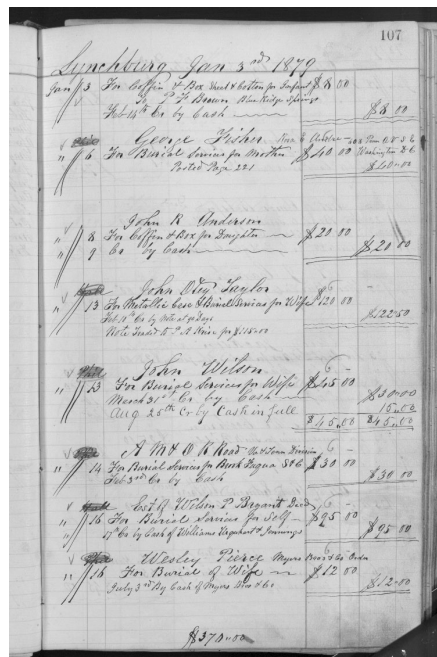 107
Lynchburg Jan 3rd 1879
Jan 3 For Coffin & Box Sheet & Cotton for Infant $8 00
To P H Brown Blue Ridge Springs
Feb 14th Cr by Cash $8 00
George Fisher
" 6 For Burial Services for Mother $40 00 Washington D C
Posted Page 221 $40.00
John R Anderson
" 8 For Coffin & Box for Daughter $20 00
" 9 Cr by Cash $20 00
John Otey Taylor
" 13 For Metallic Case & Burial Services for Wife $120 00
Cr by Note at 90 Days $122.50
Note
John Wilson
" 13 For Burial Services for Wife $45 00
March 31st Cr by Cash $30.00
Aug 25th Cr by Cash in full 15.00
$45.00 $45.00
A M & O R Road
" 14 For Burial Services for $30 00
Feb 3rd Cr by Cash $30 00
Est of Wilson P Bryant Decd
" 16 For Burial Services for Self $95 00
17th Cr by Cash of Williams Urquhart & Jennings $95 00
Wesley Pierce Myers Bros & Co Order
" 16 For Burial of Wife $12 00
July 3rd By Cash of Myers Bros & Co $12.00
$370.00